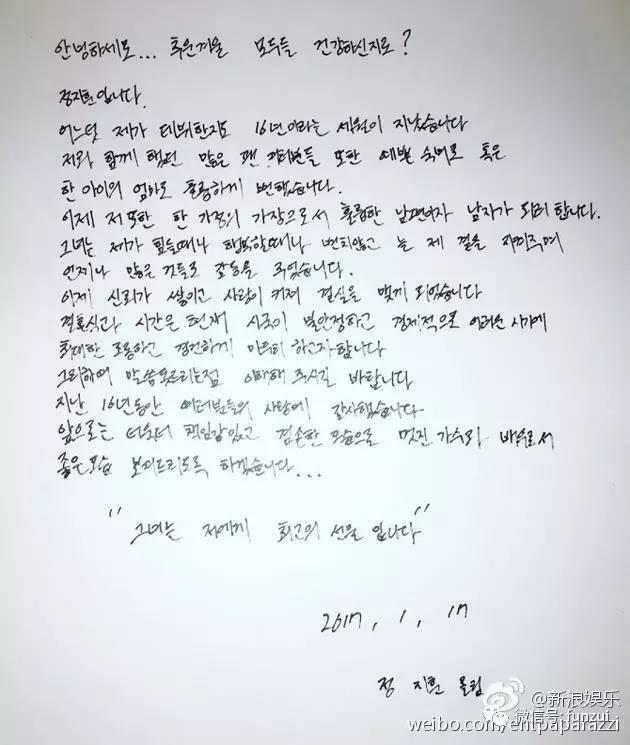 안녕하세요... 추운겨울 모두들 건강하신지요?
정지훈입니다.
어느덧 제가 데뷔한지도 16년이라는 세월이 지났습니다
저와 함께 했던 많은 팬 여러분들 또한 예쁜 숙녀로 혹은
한 아이의 엄마로 훌륭하게 변했습니다.
이제 저 또한 한 가정의 가장으로서 훌륭한 남편이자 남자가 되려 합니다.
그녀는 제가 힘들때나 행복할때나 변치않고 늘 제 곁을 지켜주며
언제나 많은 것들로 감동을 주었습니다.
이제 신뢰가 쌓이고 사랑이 커져 결실을 맺게 되었습니다
결혼식과 시간은 현재 시국이 불안정하고 경제적으로 어려운 시기에
최대한 조용하고 경건하게 마무리 하고자합니다
그리하여 말씀못드리는점 이해해 주시길 바랍니다
지난 16년동안 여러분들의 사랑에 감사했습니다
앞으로는 더욱더 책임감있고 겸손한 모습으로 멋진 가수와 배우로서
좋은모습 보여드리도록 하겠습니다...
"그녀는 저에게 최고의 선물 입니다"
2017, 1, 17
정 지훈 올림
@新浪娱乐
微信号: funzui
weibo.com/entpaparazzi